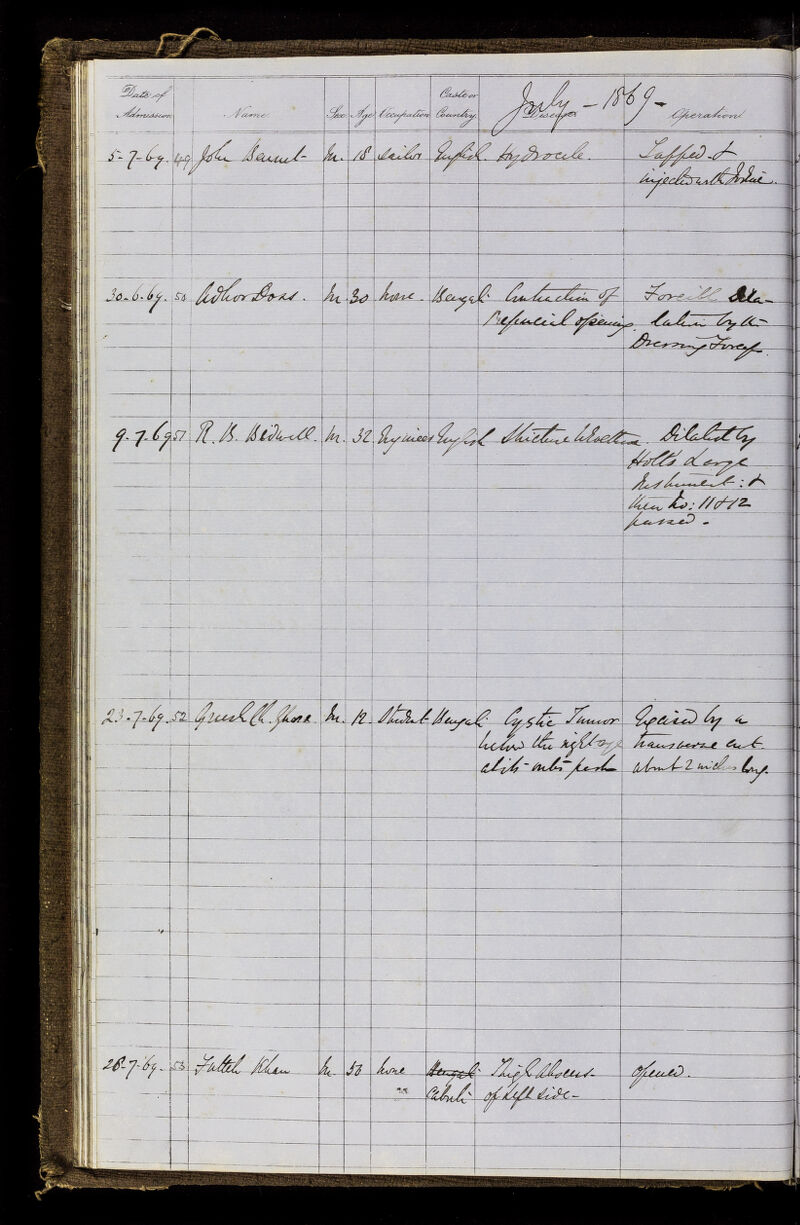 July - 1869 -
Date of Admission Name Sex Age Occupation Caste or Country Disease Operation
5-7-69. 49 John Bennet M. 18 Sailor English. Hydrocele. Tapped &
injected with Iodine.
30-6-69. 50 Adhor Doss. M. 30 none. Bengali Contraction of Forcible Dila-
Prepucial opening. tation by the
Dressing Forceps.
9-7-69 51 R. B. Bidwell. M. 32. Engineer English Stricture Urethra. Dilated by
Holt's Large
Instrument: &
then No: 11 & 12
passed.
23-7-69. 52 Grish Ch. Ghose. M. 12. Student Bengali Cystic Tumor Excised by a
below the right eye transverse cut
at its outer part about 2 inches long.
28-7-69. 53 Futteh Khan M. 50 none Bengali Thigh Abscess- opened.
" Cabuli of left side-